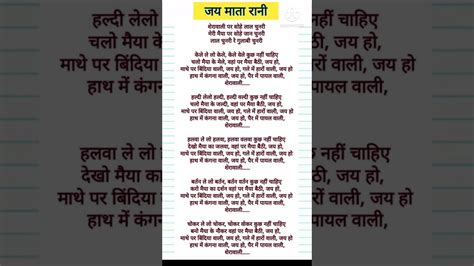 जय माता रानी
शेरावाली पर सोहे लाल चुनरी
मेरी मैया पर सोहे जान चुनरी
लाल चुनरी रे गुलाबी चुनरी
केले ले लो केले, केले वेले कुछ नहीं चाहिए
चलो मैया के मेले, वहां पर मैया बैठी, जय हो,
माथे पर बिंदिया वाली, जय हो, गले में हारों वाली, जय हो
हाथ में कंगना वाली, जय हो, पैर में पायल वाली,
शेरावाली.....
हल्दी लेलो हल्दी, हल्दी वल्दी कुछ नहीं चाहिए
चलो मैया के जल्दी, वहां पर मैया बैठी, जय हो,
माथे पर बिंदिया वाली, जय हो, गले में हारों वाली, जय हो
हाथ में कंगना वाली, जय हो, पैर में पायल वाली,
शेरावाली.....
हलवा ले लो हलवा, हलवा वलवा कुछ नहीं चाहिए
देखो मैया का जलवा, वहां पर मैया बैठी, जय हो,
माथे पर बिंदिया वाली, जय हो, गले में हारों वाली, जय हो
हाथ में कंगना वाली, जय हो, पैर में पायल वाली,
शेरावाली.....
बर्तन ले लो बर्तन, बर्तन वर्तन कुछ नहीं चाहिए
करो मैया का दर्शन वहां पर मैया बैठी, जय हो,
माथे पर बिंदिया वाली, जय हो, गले में हारों वाली, जय हो
हाथ में कंगना वाली, जय हो, पैर में पायल वाली,
शेरावाली.....
चोकर ले लो चोकर, चोकर वोकर कुछ नहीं चाहिए
बनो मैया के नौकर वहां पर मैया बैठी, जय हो,
माथे पर बिंदिया वाली, जय हो, गले में हारों वाली, जय हो
हाथ में कंगना वाली, जय हो, पैर में पायल वाली,
शेरावाली.....